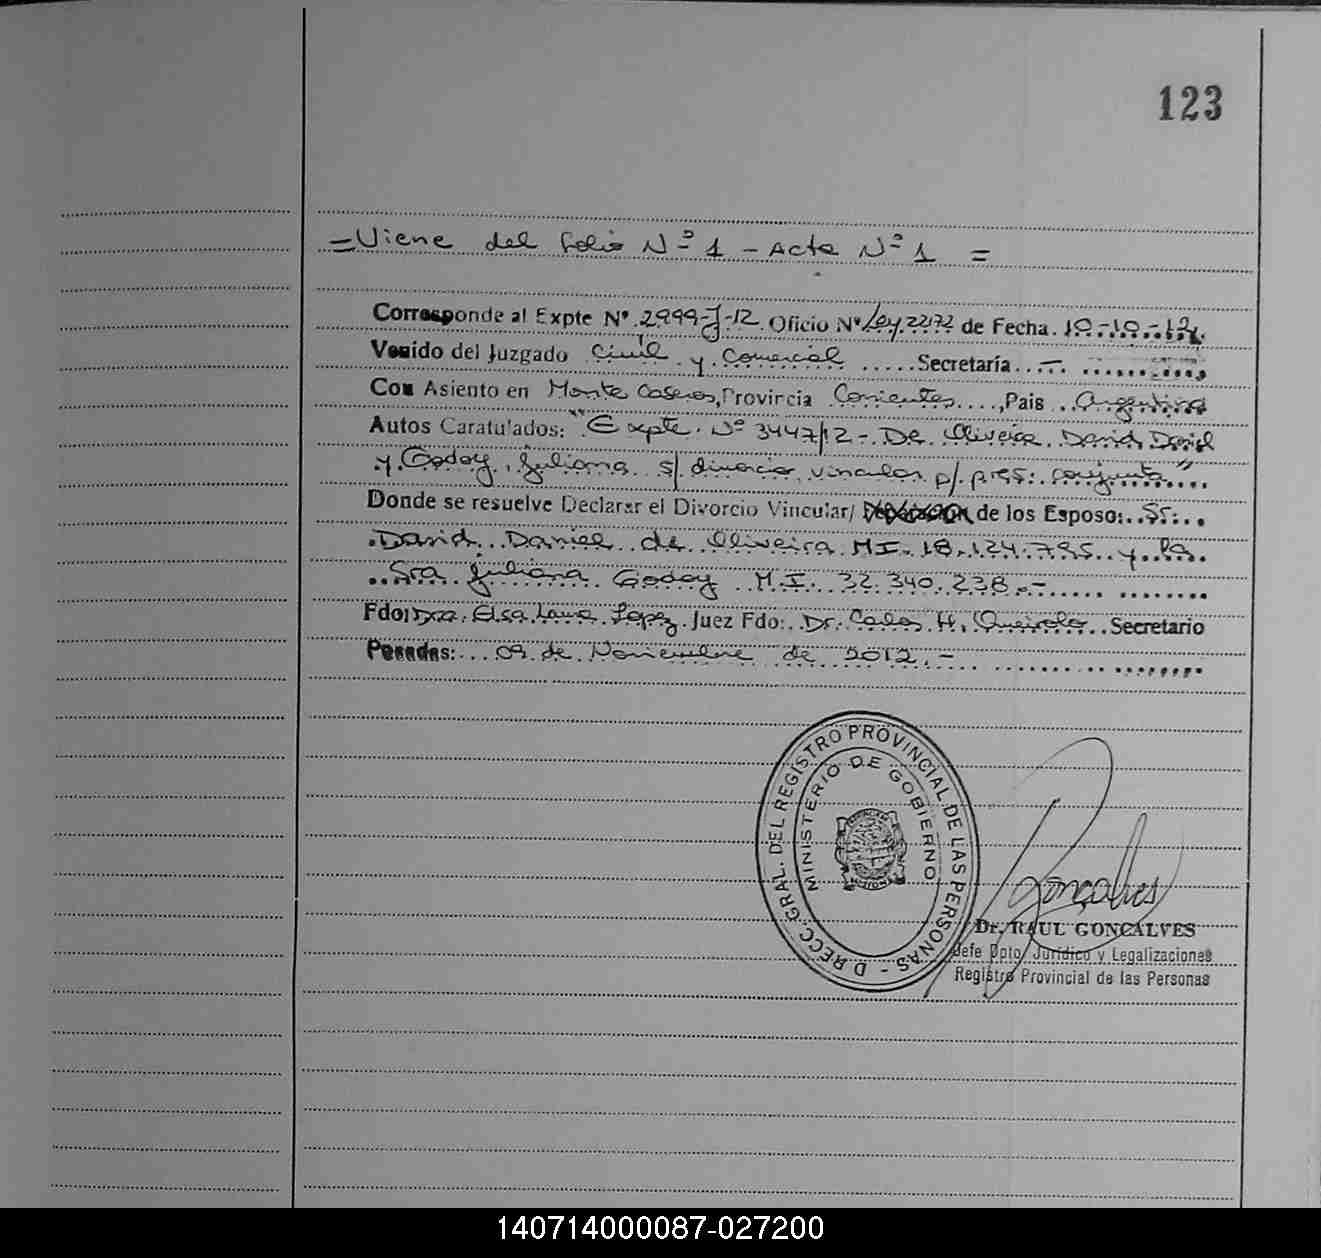 123
=Viene del folio Nº 1 - Acta Nº 1 =
Corresponde al Expte Nº 2999-J-12 Oficio Nº Ley 22172 de Fecha. 10-10-12
Venido del Juzgado Civil y Comercial ..... Secretaría .. -
Con Asiento en Monte Caseros, Provincia Corrientes ...., Pais .. Argentina
Autos Caratulados: "Expte. Nº 3447/12 - De Oliveira David Daniel
y Godoy, Juliana s/ divorcio vincular p/ pres. conjunta"
Donde se resuelve Declarar el Divorcio Vincular/ de los Esposo: Sr.
David Daniel de Oliveira MI. 18.124.795 y la
Sra Juliana Godoy M.I. 32.340.238.-
Fdo: Dra. Elsa Laura Lopez Juez Fdo: Dr. Carlos H. Queirolo Secretario
Posadas: 09 de Noviembre de 2012.-
DRECC. GRAL. DEL REGISTRO PROVINCIAL DE LAS PERSONAS -
MINISTERIO DE GOBIERNO
Gonçalves
Dr. RAUL GONCALVES
Jefe Dpto. Jurídico y Legalizaciones
Registro Provincial de las Personas
140714000087-027200